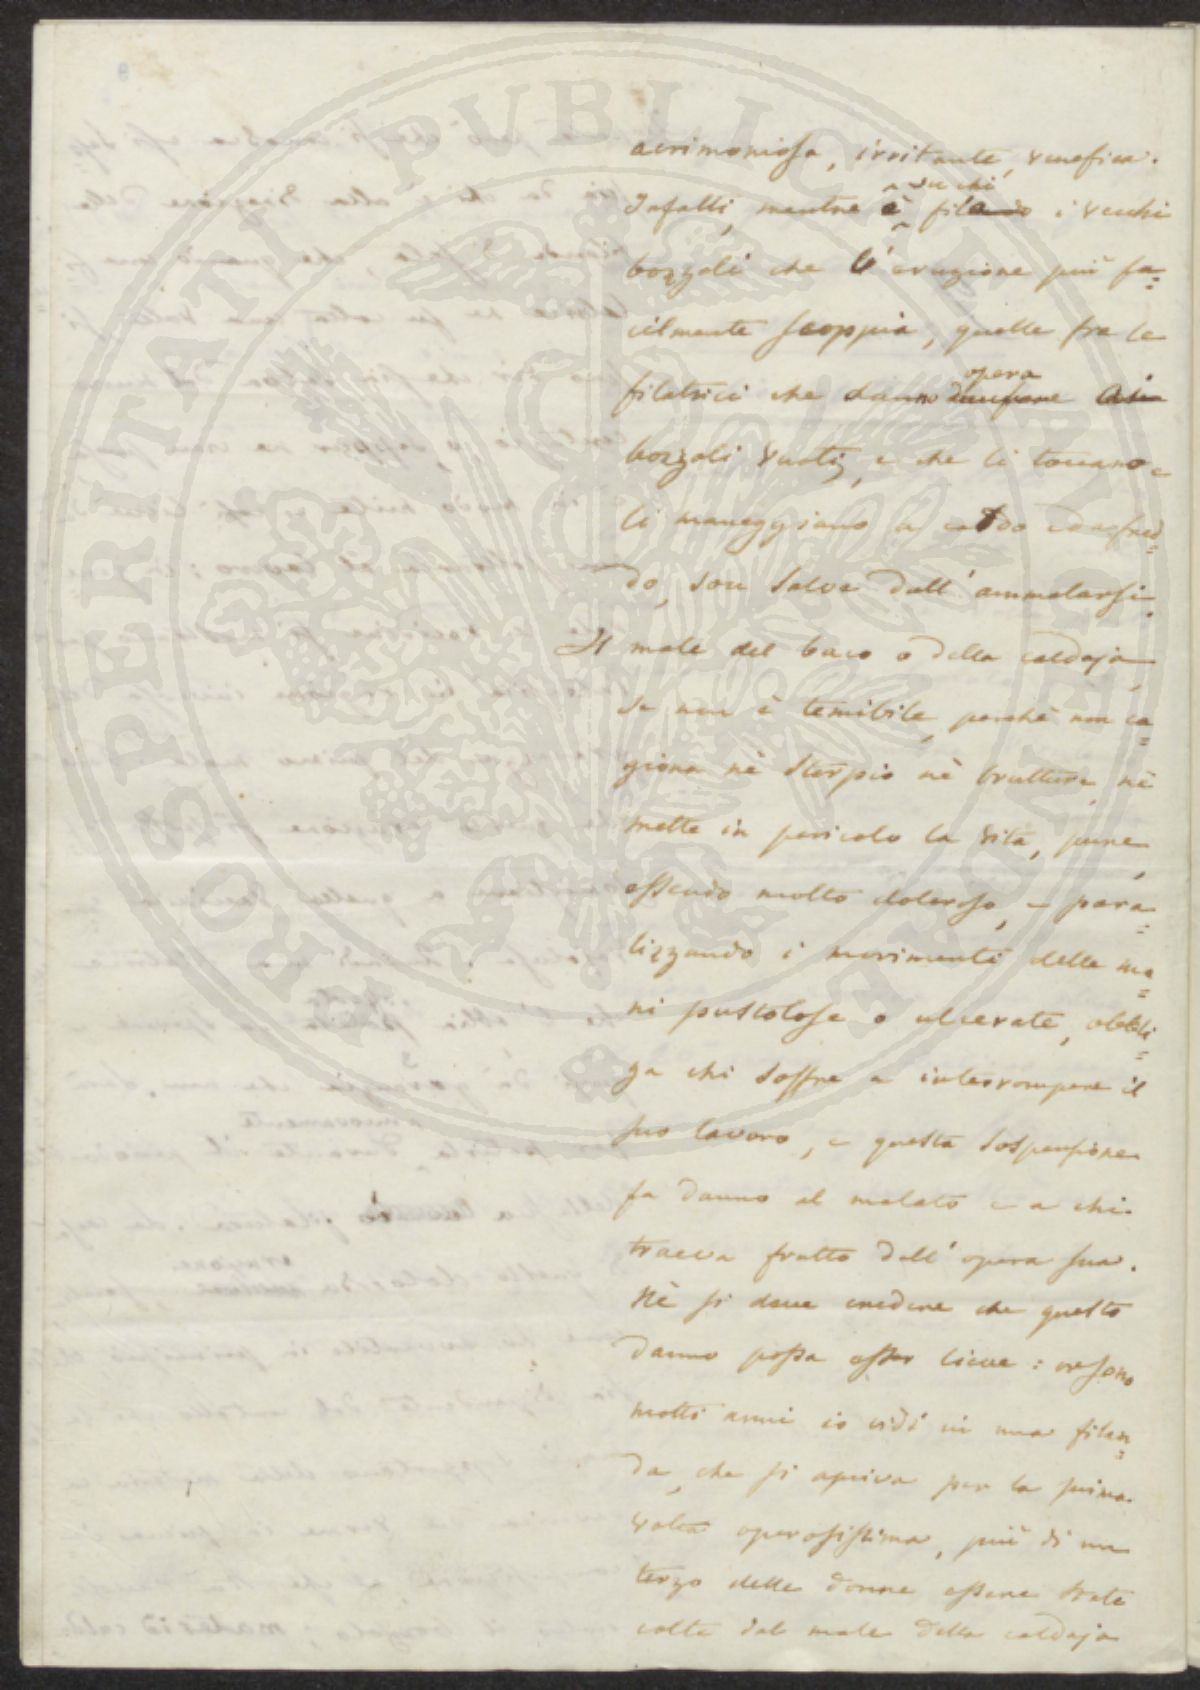 acrimoniosa, irritante, venefica.
Infatti, mentre è fila i vecchi
bozzoli che l'eruzione più fa=
cilmente scoppia, quelle fra le
filatrici che danno opera ai
bozzoli vuoti, e che li toccano e
li maneggiano a caldo
do, son salve dall'ammalarsi.
Il male del baco o della caldaja,
se non è temibile, perchè non ca=
giona nè storpio nè brutture, nè
mette in pericolo la vita, pure,
essendo molto doloroso, e para=
lizzando i movimenti delle ma=
ni pustolose o ulcerate, obbli=
ga chi soffre a interrompere il
suo lavoro, e questa sospensione
fa danno al malato e a chi
traeva frutto dall'opera sua.
Nè si deve credere che questo
danno possa esser lieve: or sono
molti anni io vidi in una filan=
da, che si apriva per la prima
volta operosissima, più di un
terzo delle donne essere state
colte dal male della caldaja
PROSPERITATI PVBLICAE AVGENDAE